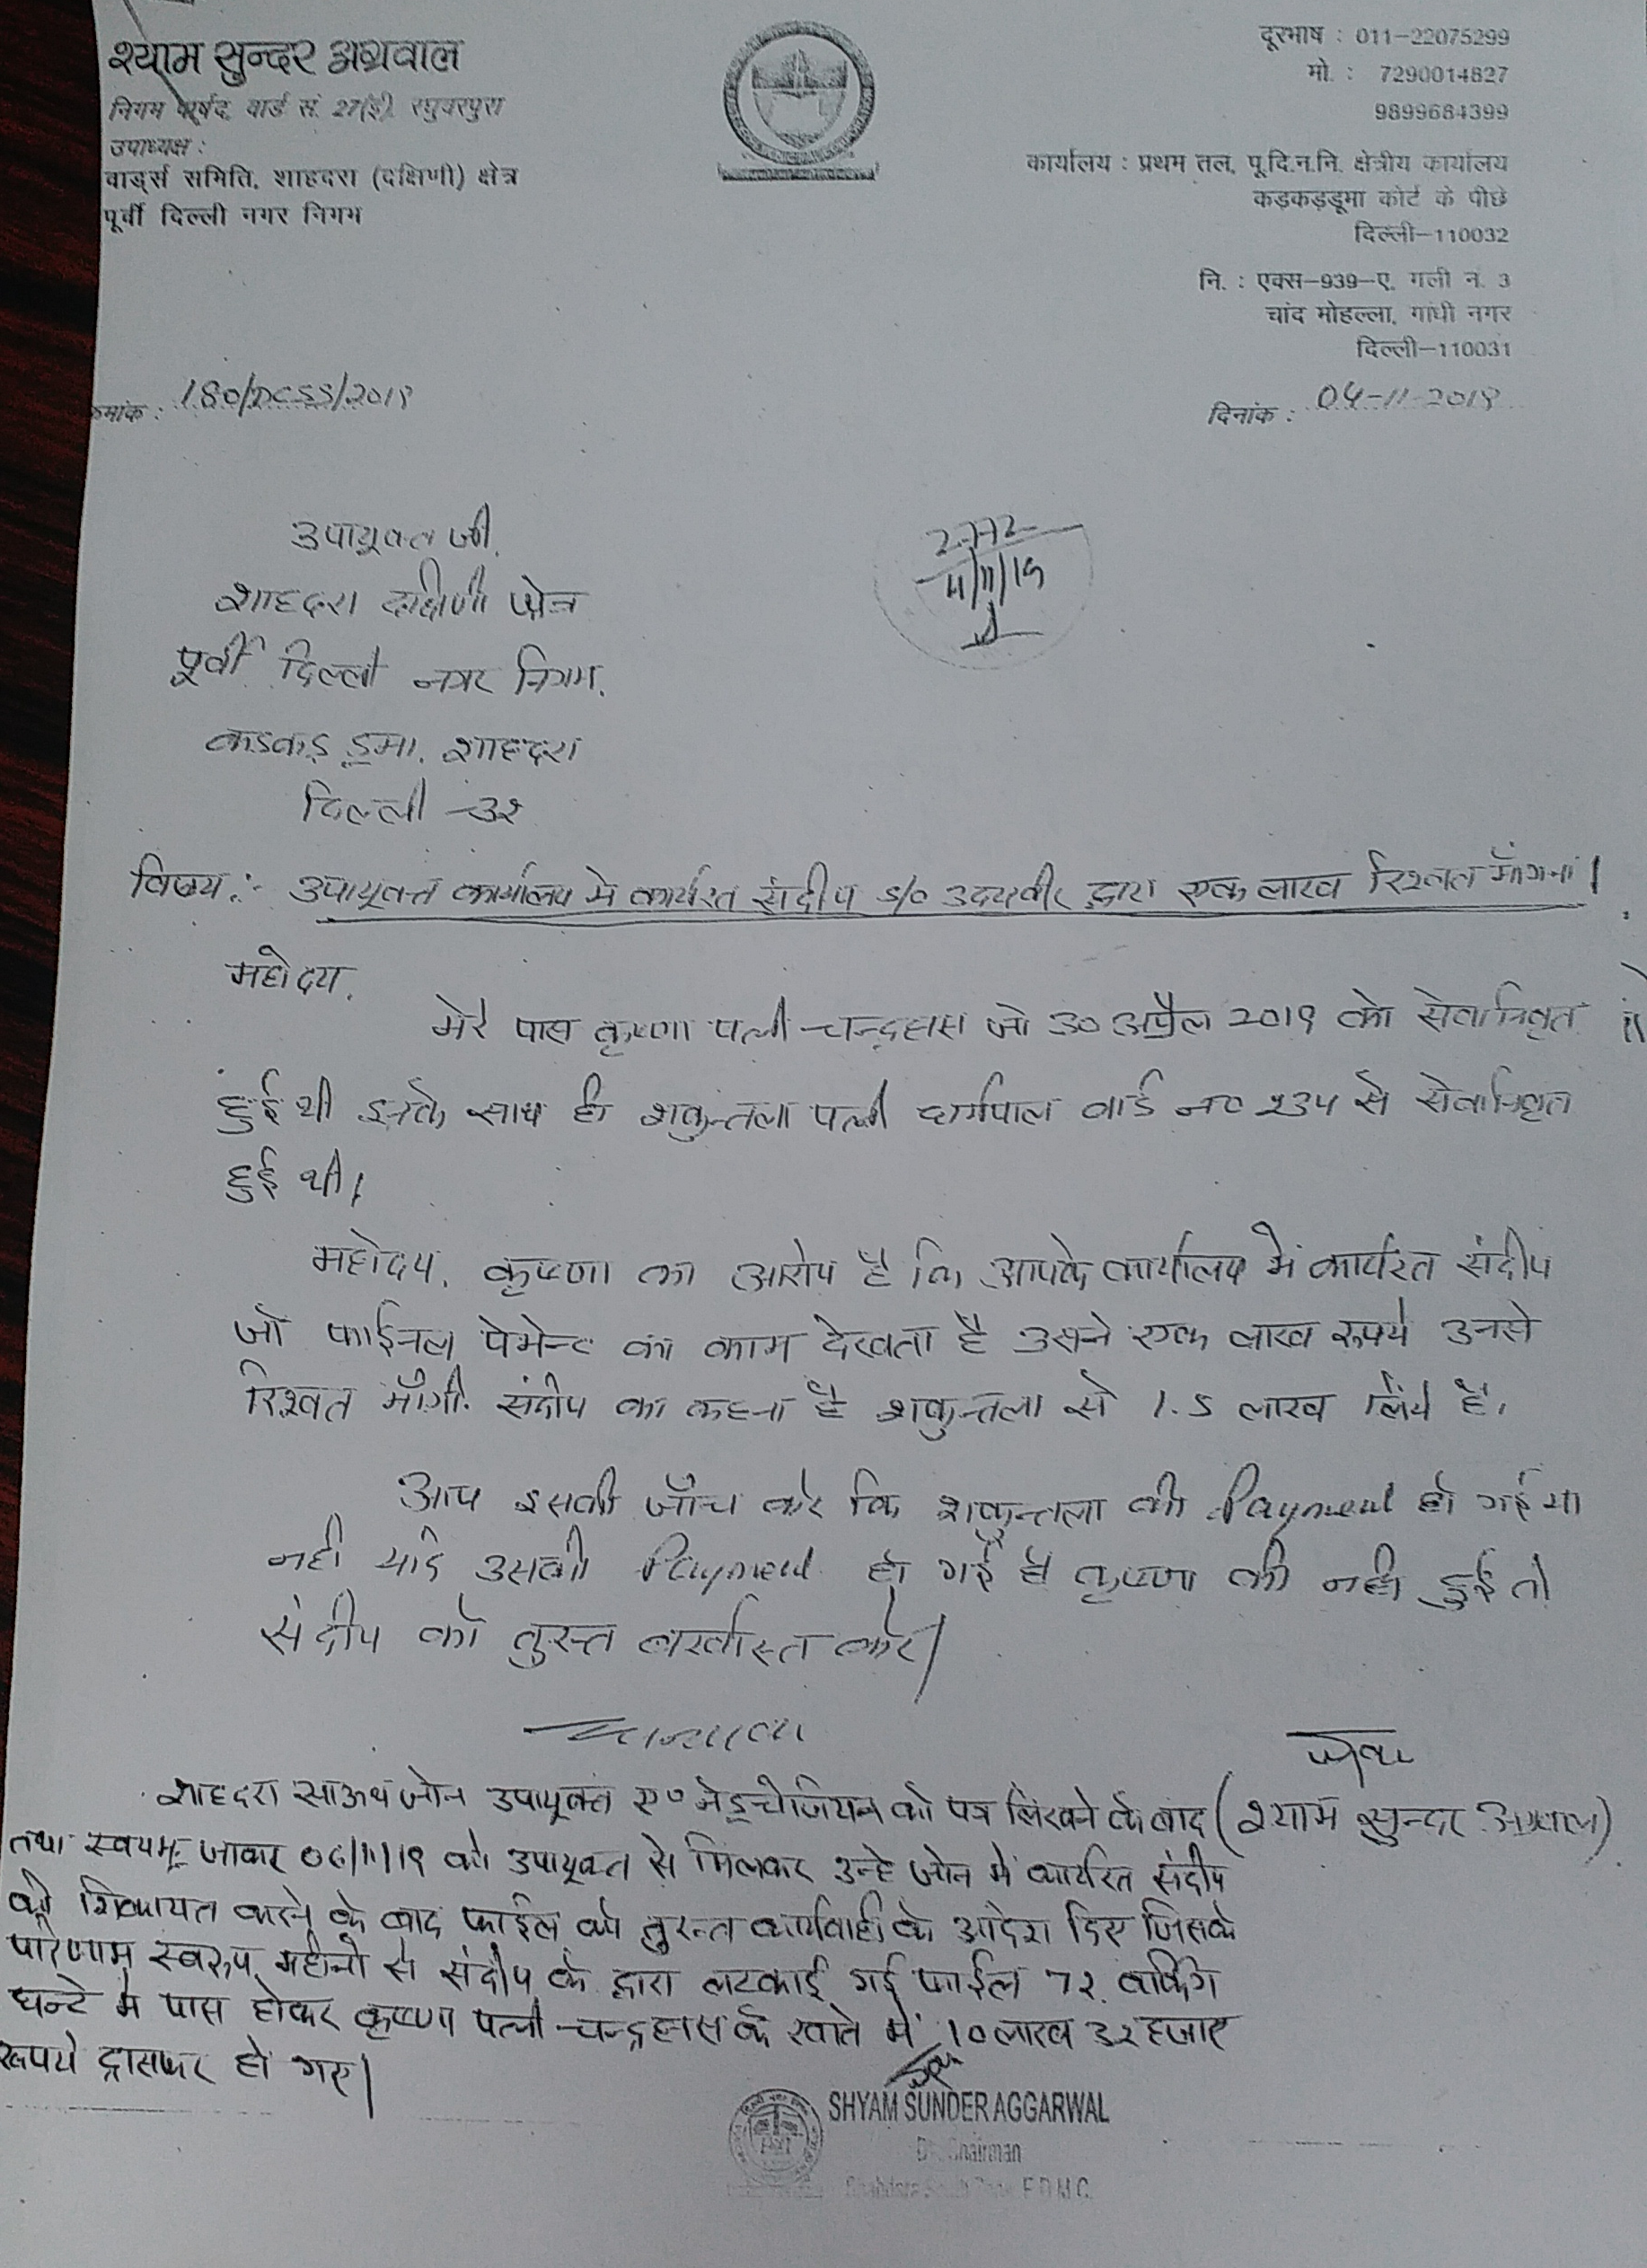 श्याम सुन्दर अग्रवाल
निगम पार्षद, वार्ड सं. 27(ई), रघुवरपुरा
उपाध्यक्ष :
वार्ड्स समिति, शाहदरा (दक्षिणी) क्षेत्र
पूर्वी दिल्ली नगर निगम
दूरभाष : 011-22075299
मो. : 7290014827
9899684399
कार्यालय : प्रथम तल, पू.दि.न.नि. क्षेत्रीय कार्यालय
कड़कड़डूमा कोर्ट के पीछे
दिल्ली-110032
नि. : एक्स-939-ए, गली नं. 3
चांद मोहल्ला, गांधी नगर
दिल्ली-110031
क्रमांक : 180/DCSS/2019
दिनांक : 04-11-2019
उपायुक्त जी,
शाहदरा दक्षिणी जोन
पूर्वी दिल्ली नगर निगम,
कडकड डूमा, शाहदरा
दिल्ली-32
2772
4/11/19
विषय :- उपायुक्त कार्यालय मे कार्यरत संदीप s/o उदयवीर द्वारा एक लाख रिश्वत माँगना।
महोदय,
मेरे पास कृष्णा पत्नी चन्द्रहास जो 30 अप्रैल 2019 को सेवानिवृत
हुई थी इनके साथ ही शकुन्तला पत्नी धर्मपाल वार्ड न० 234 से सेवानिवृत
हुई थी।
महोदय, कृष्णा का आरोप है कि आपके कार्यालय में कार्यरत संदीप
जो फाईनल पेमेन्ट का काम देखता है उसने एक लाख रूपये उनसे
रिश्वत माँगी. संदीप का कहना है शकुन्तला से 1.5 लाख लिये है,
आप इसकी जाँच करे कि शकुन्तला की Payment हो गई या
नही यदि उसकी Payment हो गई है कृष्णा की नही हुई तो
संदीप को तुरन्त बर्खास्त करे।
धन्यवाद
शाहदरा साऊथ जोन उपायुक्त ए० नेडुचेजियन को पत्र लिखने के बाद (श्याम सुन्दर अग्रवाल)
तथा स्वयम् जाकर 06/11/19 को उपायुक्त से मिलकर उन्हे जोन में कार्यरत संदीप
की शिकायत करने के बाद फाईल को तुरन्त कार्यवाही के आदेश दिए जिसके
परिणाम स्वरूप महीनो से संदीप के द्वारा लटकाई गई फाईल 72 वर्किंग
घन्टे मे पास होकर कृष्णा पत्नी चन्द्रहास के खाते में 10 लाख 32 हजार
रूपये ट्रासफर हो गए।
SHYAM SUNDER AGGARWAL
Dy. Chairman
Shahdara South Zone, E.D.M.C.